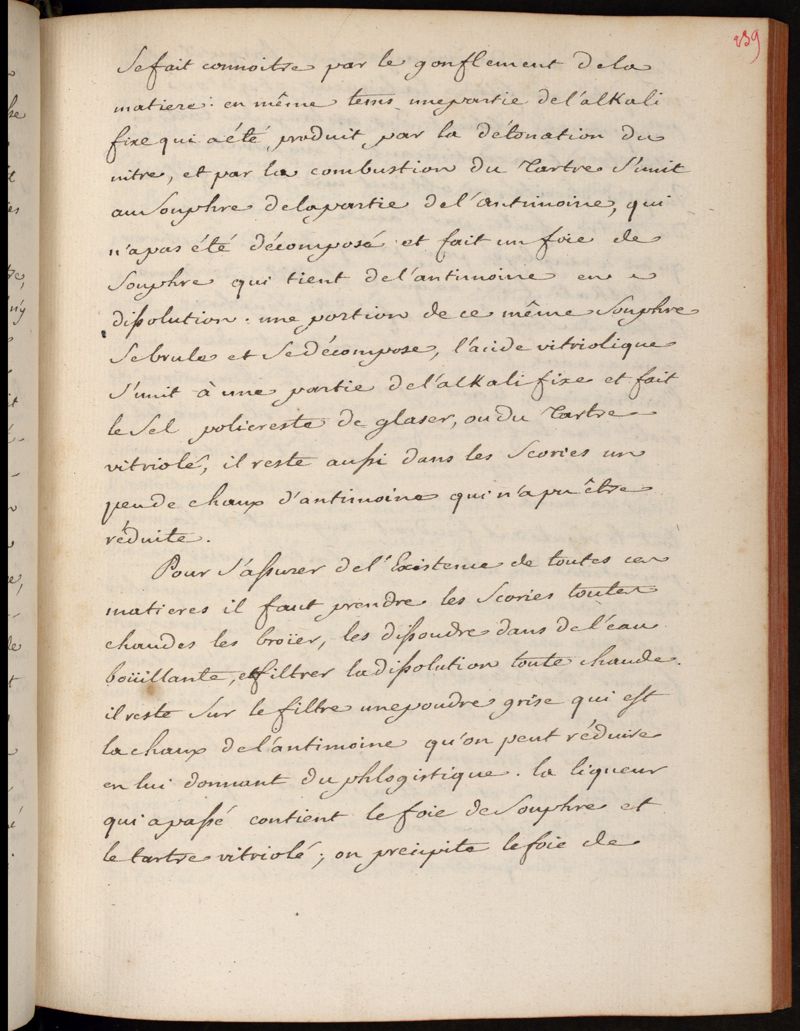 239
Se fait connoitre par le gonflement de la
matiere: en même tems une partie de l'alkali
fixe qui a été produit par la détonation du
nitre, et par la combustion du Tartre S'unit
au Souphre de la partie de l'antimoine, qui
n'a pas été décomposé et fait un foie de
Souphre qui tient de l'antimoine en
dissolution. une portion de ce même Souphre
Se brule et Se décompose, l'acide vitriolique
S'unit à une partie de l'alkali fixe et fait
le Sel policreste de glaser, ou du Tartre
vitriolé, il reste aussi dans les Scories un
peu de chaux d'antimoine qui n'a pu être
réduite.
Pour S'assurer de l'Existence de toutes ces
matieres il faut prendre les Scories toutes
chaudes les broïer, les dissoudre dans de l'eau
boüillante, et filtrer la dissolution toute chaude.
il reste Sur le filtre une poudre grise qui est
la chaux de l'antimoine qu'on peut réduire
en lui donnant du phlogistique. la liqueur
qui a passé contient le foie de Souphre et
le tartre vitriolé; on precipite le foie de